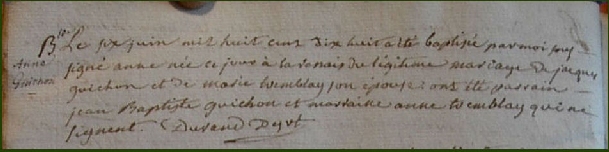 Bte Le six juin mil huit cent dix huit a été baptisée par moi sous
Anne
Guichon
signé anne née ce jour à la du légitime mariage de jacques
guichon et de marie tremblay son épouse : ont été parrain
jean Baptiste guichon et marraine anne tremblay qui ne
signent. Durand